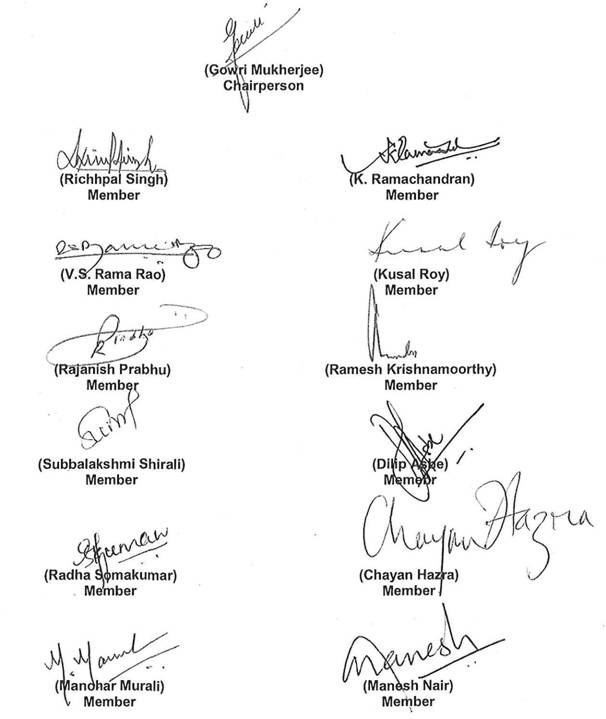 (Gowri Mukherjee)
Chairperson
(Richhpal Singh)
Member
K Ramachand
(K. Ramachandran)
Member
(V.S. Rama Rao)
Member
Kusal Roy
(Kusal Roy)
Member
Prabhu
(Rajanish Prabhu)
Member
(Ramesh Krishnamoorthy)
Member
(Subbalakshmi Shirali)
Member
(Dilip Ashe)
Memebr
(Radha Somakumar)
Member
Chayan Hazra
(Chayan Hazra)
Member
(Manohar Murali)
Member
Manesh
(Manesh Nair)
Member